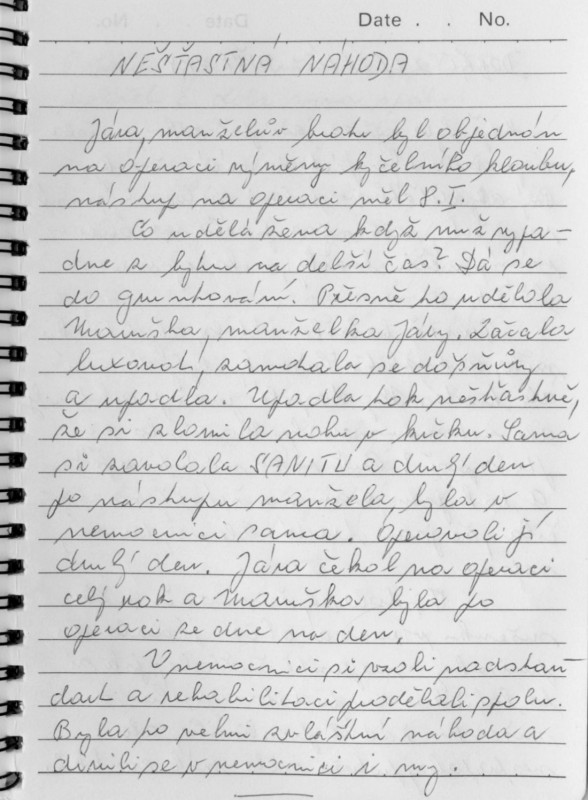 Date . . No.
NEŠŤASTNÁ NÁHODA
Jára, manželův bratr byl objednán
na operaci výměny kyčelního kloubu,
nástup na operaci měl 8.I.
Co udělá žena když muž vypa-
dne z bytu na delší čas? Dá se
do gruntování. Přesně to udělala
Maruška, manželka Járy. Začala
luxovat, zamotala se do šňůry
a upadla. Upadla tak nešťastně,
že si zlomila nohu v krčku. Sama
si zavolala SANITU a druhý den
po nástupu manžela, byla v
nemocnici sama. Operovali jí
druhý den. Jára čekal na operaci
celý rok a Maruška byla po
operaci ze dne na den.
V nemocnici si vzali nadstan-
dart a rehabilitaci prodělali spolu.
Byla to velmi zvláštní náhoda a
divili se v nemocnici i my.